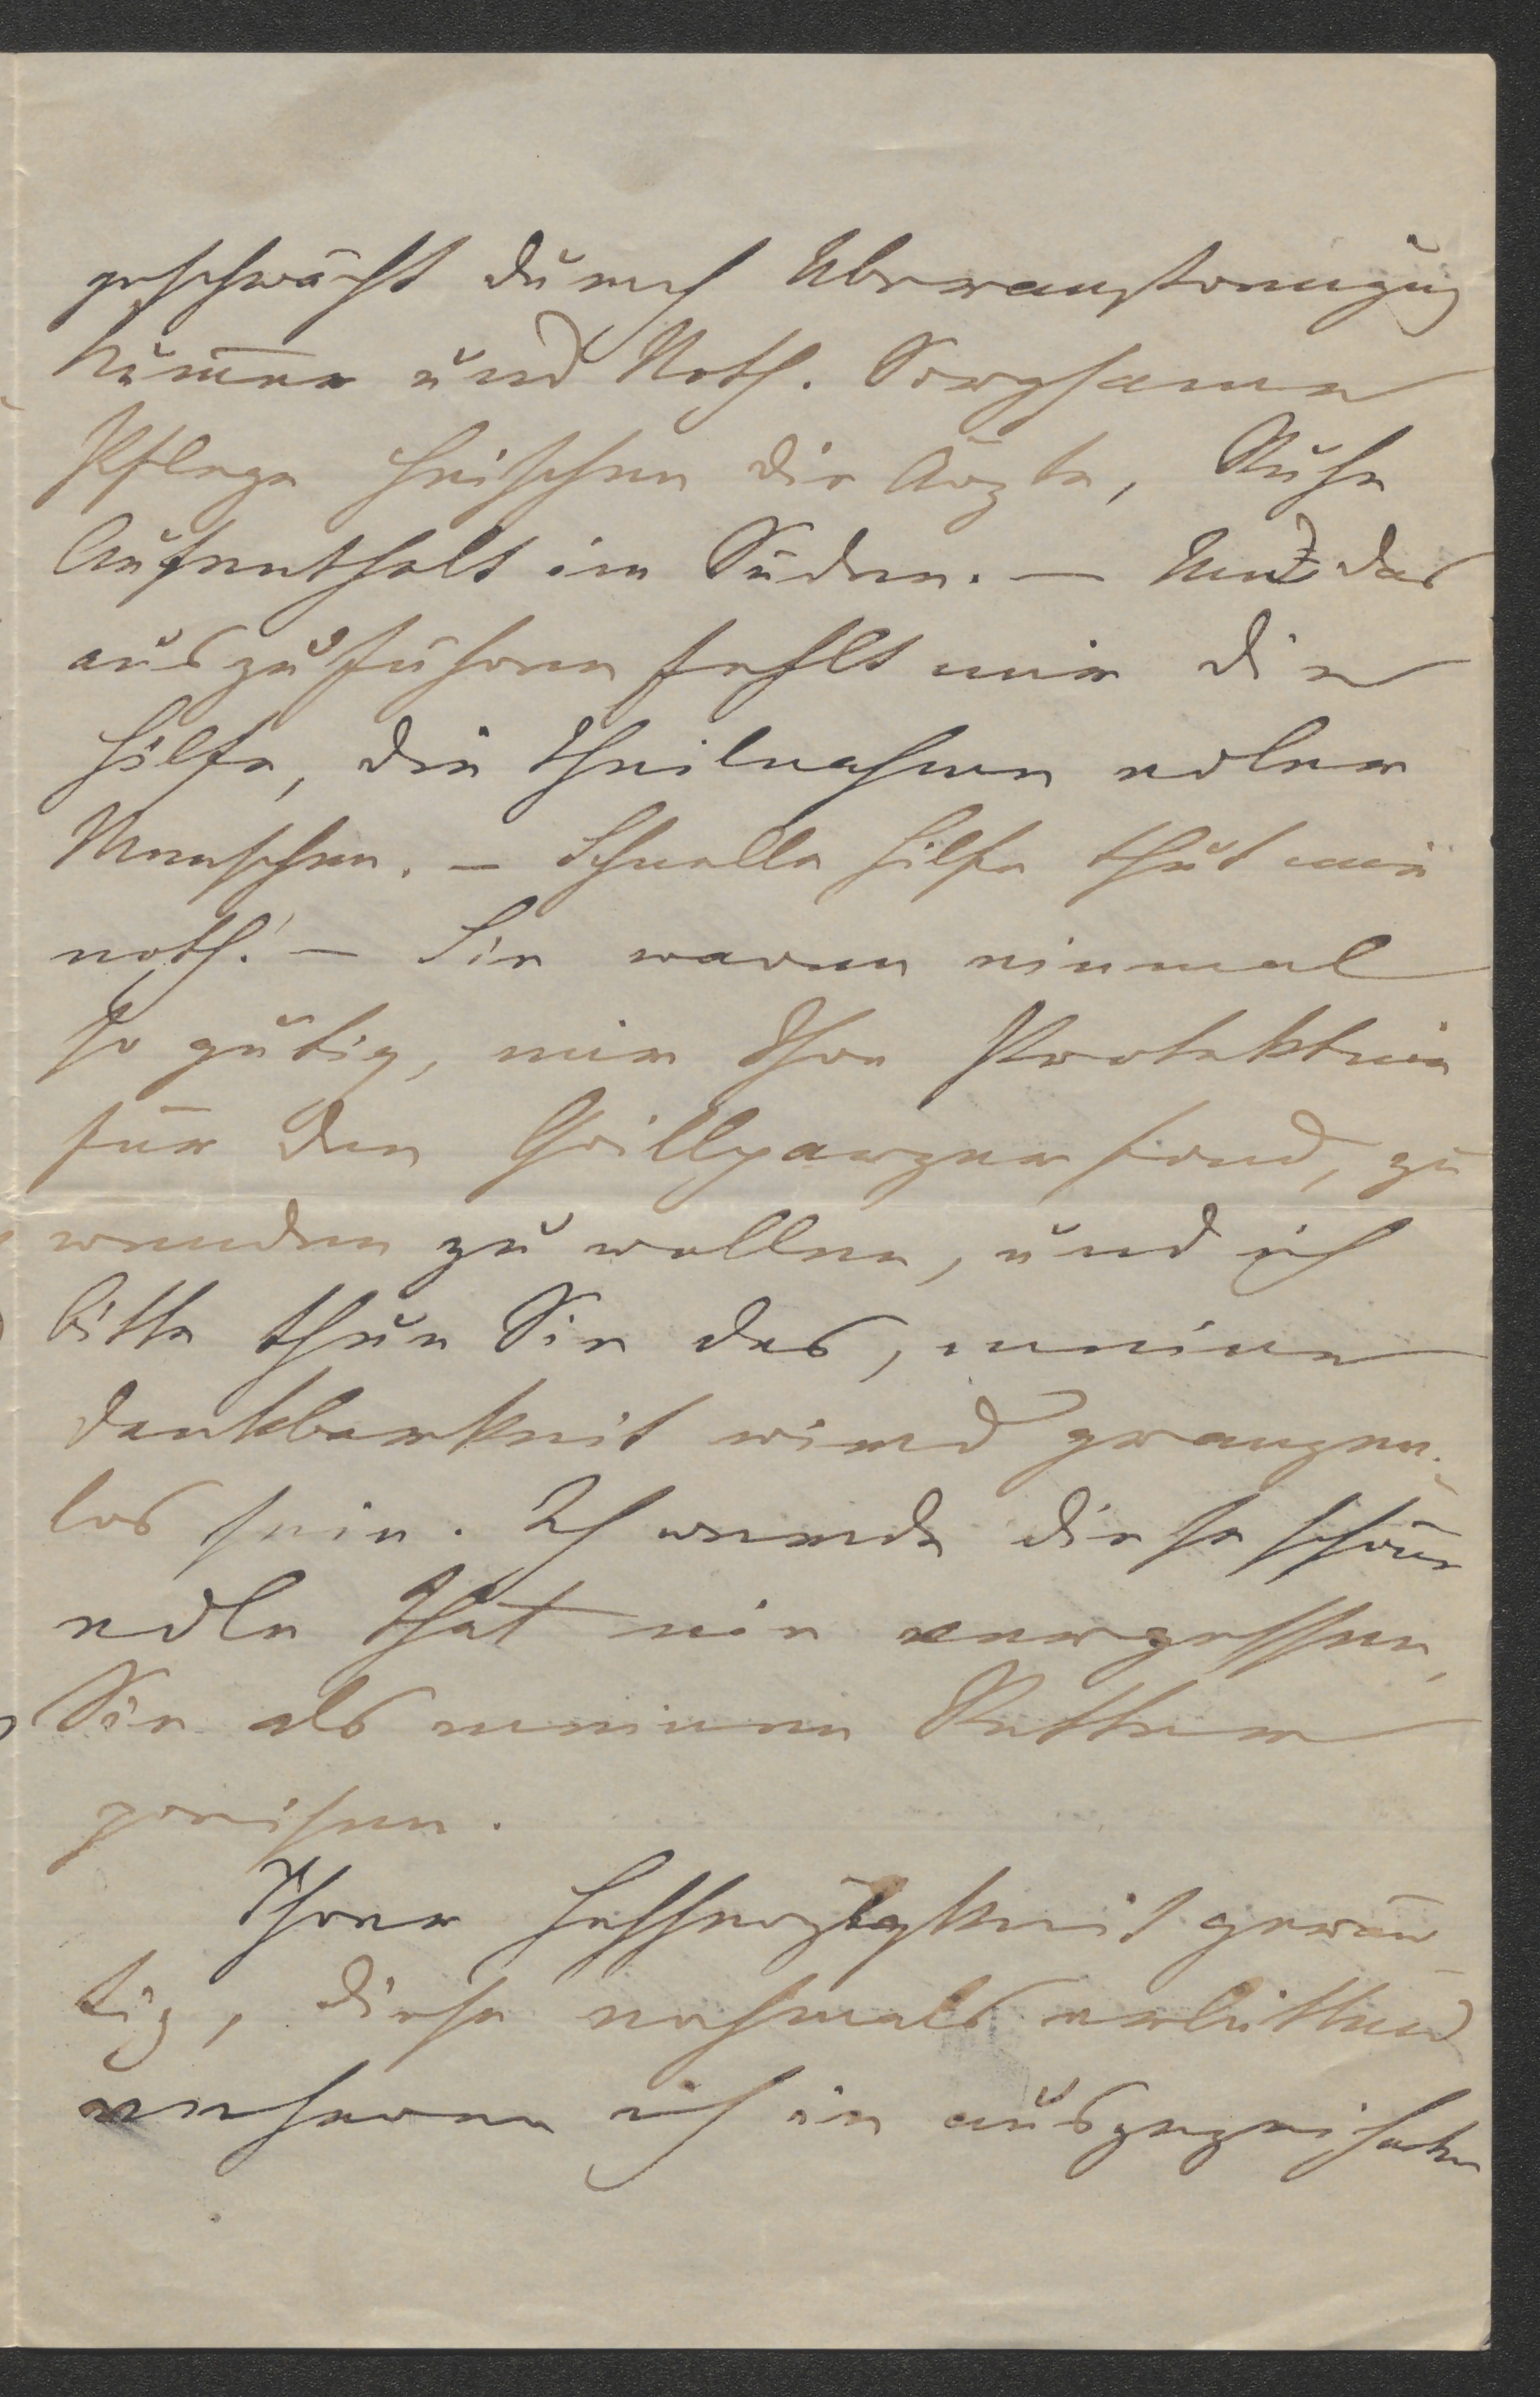 geschwächt durch Überanstrengung
Kummer und Noth. Sorgsame
Pflege heischen die Ärzte, Ruhe
Aufenthalt im Süden. — Und das
auszuführen fehlt mir die
Hilfe, die Theilnahme edler
Menschen. — Schnelle Hilfe thut mir
noth! — Sie waren einmal
so gütig, mir Ihre Protektion
für den Grillparzerfond, zu
wenden zu wollen, und ich
bitte thun Sie das, meine
Dankbarkeit wird grenzen-
los sein. Ich werde diese schöne
edle That nie vergessen,
Sie als meinen Retter
preisen.
Ihrer hochherzigkeit gewär
tig, diese nochmals erbittend
verharre ich in ausgezeichneter